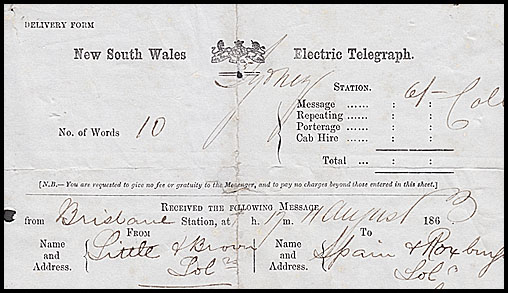 DELIVERY FORM
New South Wales Electric Telegraph.
Sydney STATION.
Message ...... : : 6/- Coll
Repeating ...... : :
Porterage ...... : :
Cab Hire ...... : :
No. of Words 10
Total ... : :
[N.B.—You are requested to give no fee or gratuity to the Messenger, and to pay no charges beyond those entered in this sheet.]
RECEIVED THE FOLLOWING MESSAGE
from Brisbane Station, at h. m. August 1863
FROM TO
Name and Address. Little & Brown Solrs
Name and Address. Spain & Roxburgh Solrs